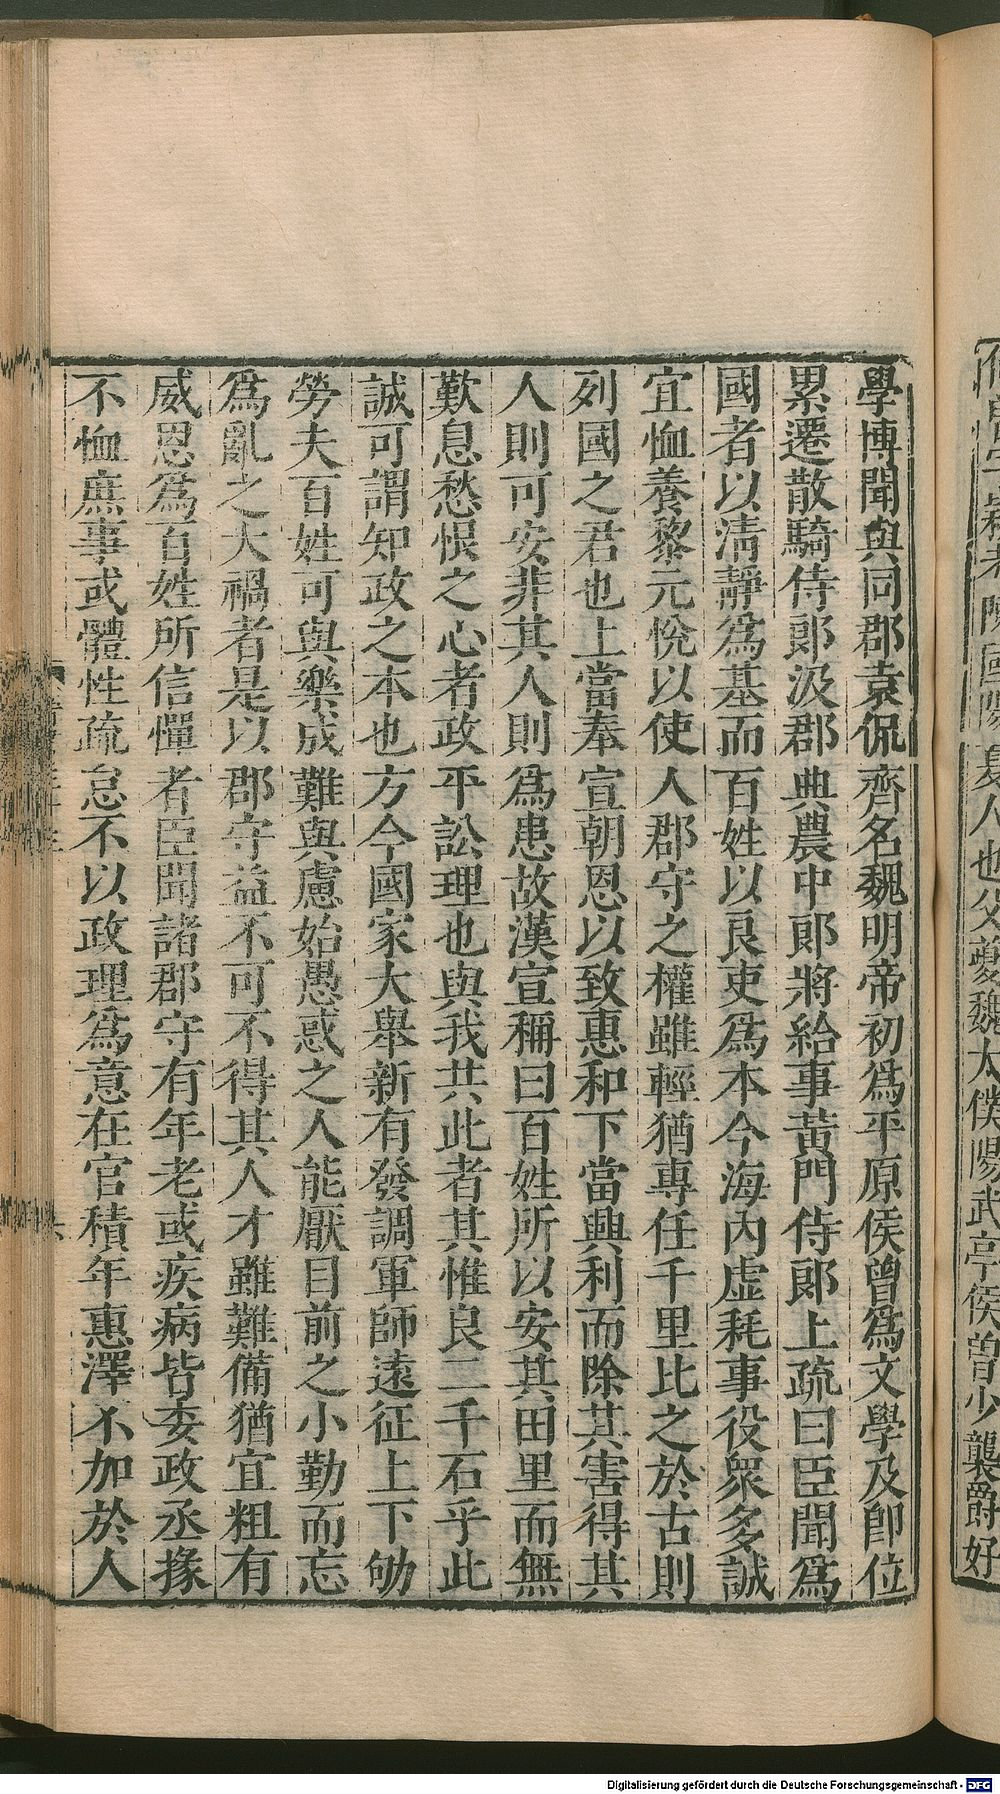 何曾字穎考陳國陽夏人也父夔魏太僕陽武亭侯曾少襲爵好
學博聞與同郡袁侃齊名魏明帝初爲平原侯曾爲文學及卽位
累遷散騎侍郞汲郡典農中郞將給事黃門侍郞上疏曰臣聞爲
國者以淸靜爲基而百姓以良吏爲本今海內虛耗事役衆多誠
宜恤養黎元悅以使人郡守之權雖輕猶專任千里比之於古則
列國之君也上當奉宣朝恩以致惠和下當興利而除其害得其
人則可安非其人則爲患故漢宣稱曰百姓所以安其田里而無
歎息愁恨之心者政平訟理也與我共此者其惟良二千石乎此
誠可謂知政之本也方今國家大舉新有發調軍師遠征上下劬
勞夫百姓可與樂成難與慮始愚惑之人能厭目前之小勤而忘
爲亂之大禍者是以郡守益不可不得其人才雖難備猶宜粗有
威恩爲百姓所信憚者臣聞諸郡守有年老或疾病皆委政丞掾
不恤庶事或體性疏怠不以政理爲意在官積年惠澤不加於人
Digitalisierung gefördert durch die Deutsche Forschungsgemeinschaft - DFG